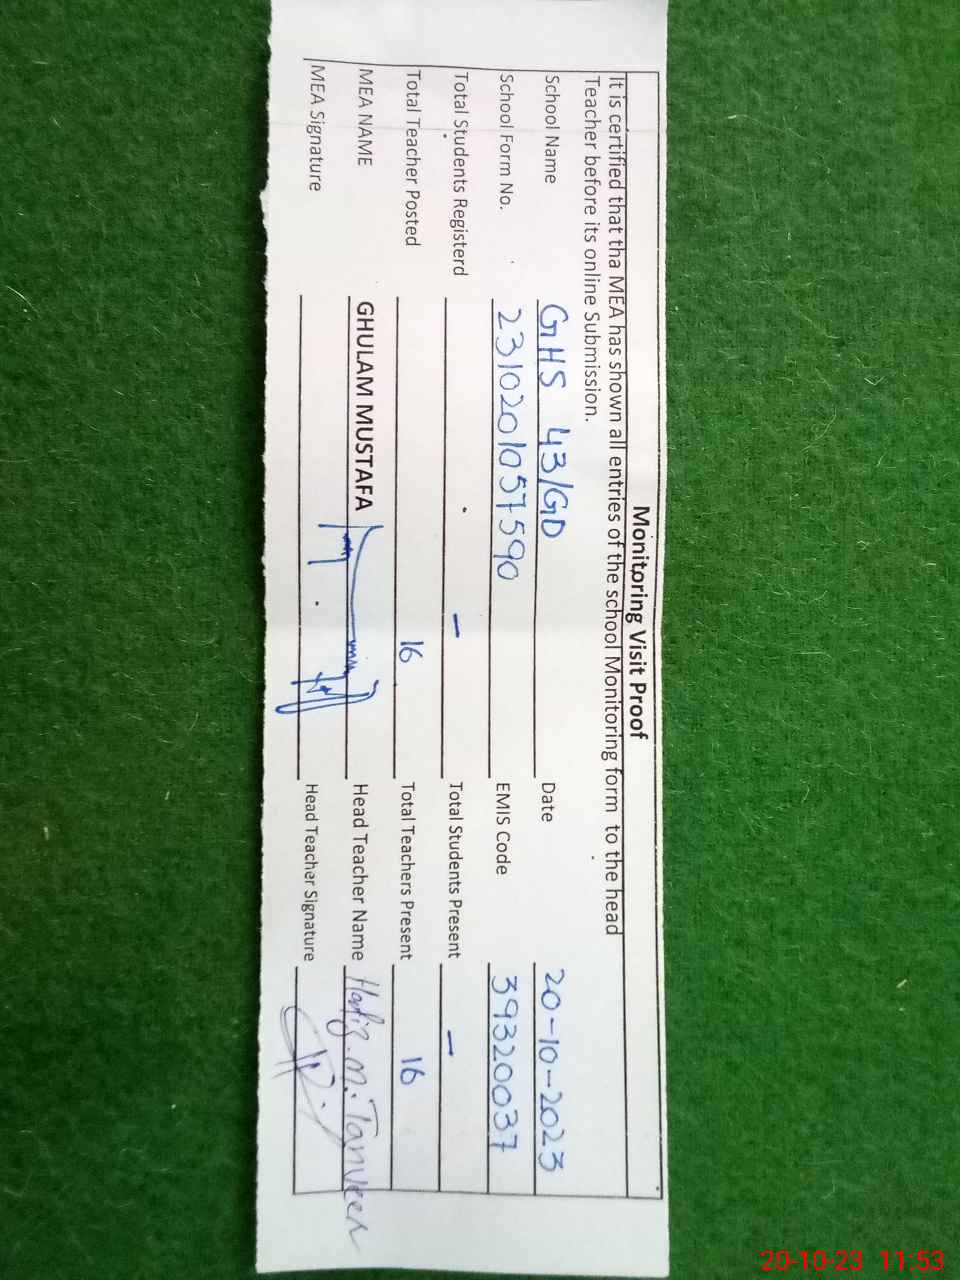 Monitoring Visit Proof
It is certified that tha MEA has shown all entries of the school Monitoring form to the head
Teacher before its online Submission.
School Name GHS 43/GD Date 20-10-2023
School Form No. 2310201057590 EMIS Code 39320037
Total Students Registerd - Total Students Present -
Total Teacher Posted 16 Total Teachers Present 16
MEA NAME GHULAM MUSTAFA Head Teacher Name Hafiz.M.Tanveer
MEA Signature Head Teacher Signature
20-10-23 11:53